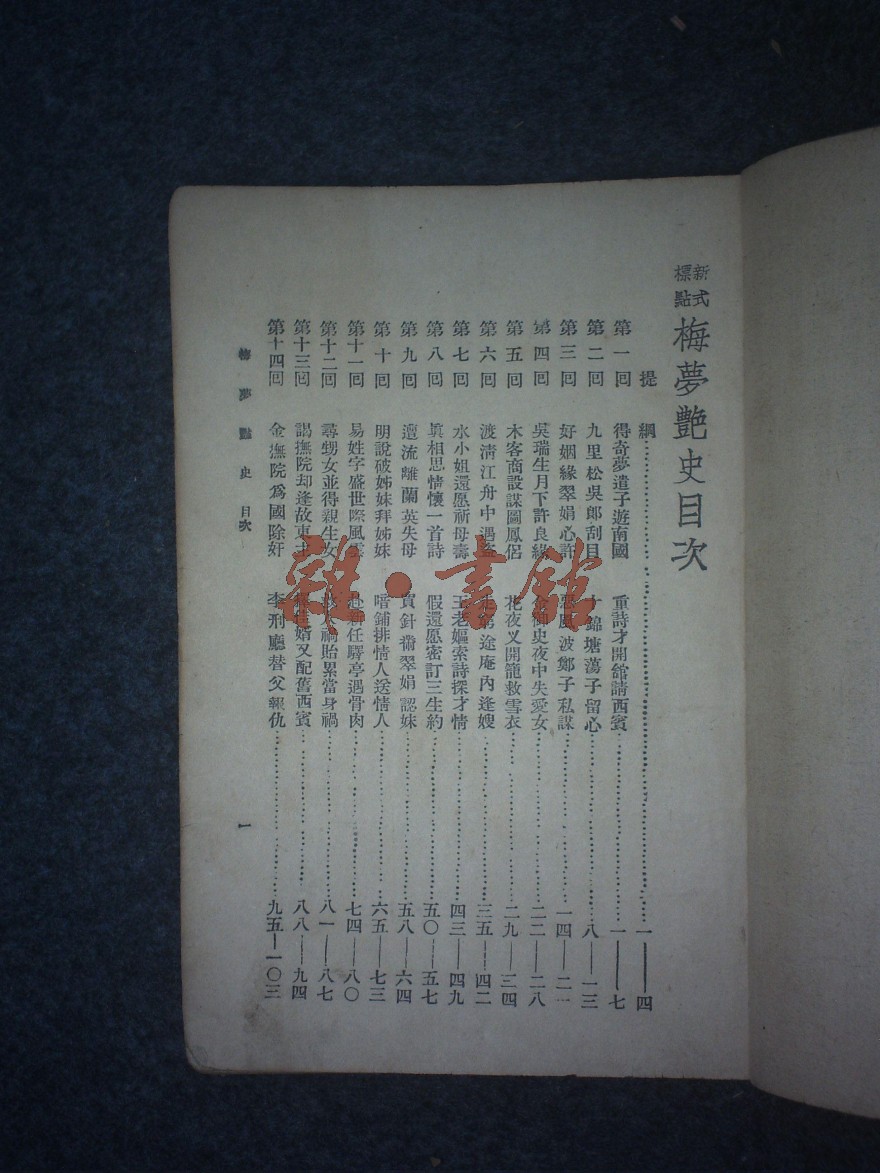 新式標點
梅夢艷史目次
提綱 一——四
第一回 得奇夢遣子遊南國 重詩才開舘請西賓 一——七
第二回 九里松吳郎刮目 十錦塘蕩子留心 八——一三
第三回 好姻緣翠娟心許 波鄭子私謀 一四——二一
第四回 吳瑞生月下許良緣 御史夜中失愛女 二二——二八
第五回 木客商設謀圖鳳侶 花夜叉開籠救雪衣 二九——三四
第六回 渡淸江舟中遇盜 途庵內逢嫂 三五——四二
第七回 水小姐還愿祈母壽 王老嫗索詩探才情 四三——四九
第八回 眞相思情懷一首詩 假還愿密訂三生約 五〇——五七
第九回 遭流離蘭英失母 賣針黹翠娟認妹 五八——六四
第十回 明說破姊妹拜姊妹 暗鋪排情人送情人 六五——七三
第十一回 易姓字盛世際風雲 赴新任驛亭遇骨肉 七四——八〇
第十二回 尋甥女並得親生女 禍貽累當身禍 八一——八七
第十三回 謁撫院却逢故東主 壻又配舊西賓 八八——九四
第十四回 金撫院爲國除奸 李刑廳替父報仇 九五——一〇三
梅夢艷史 目次
一
雜·書舘